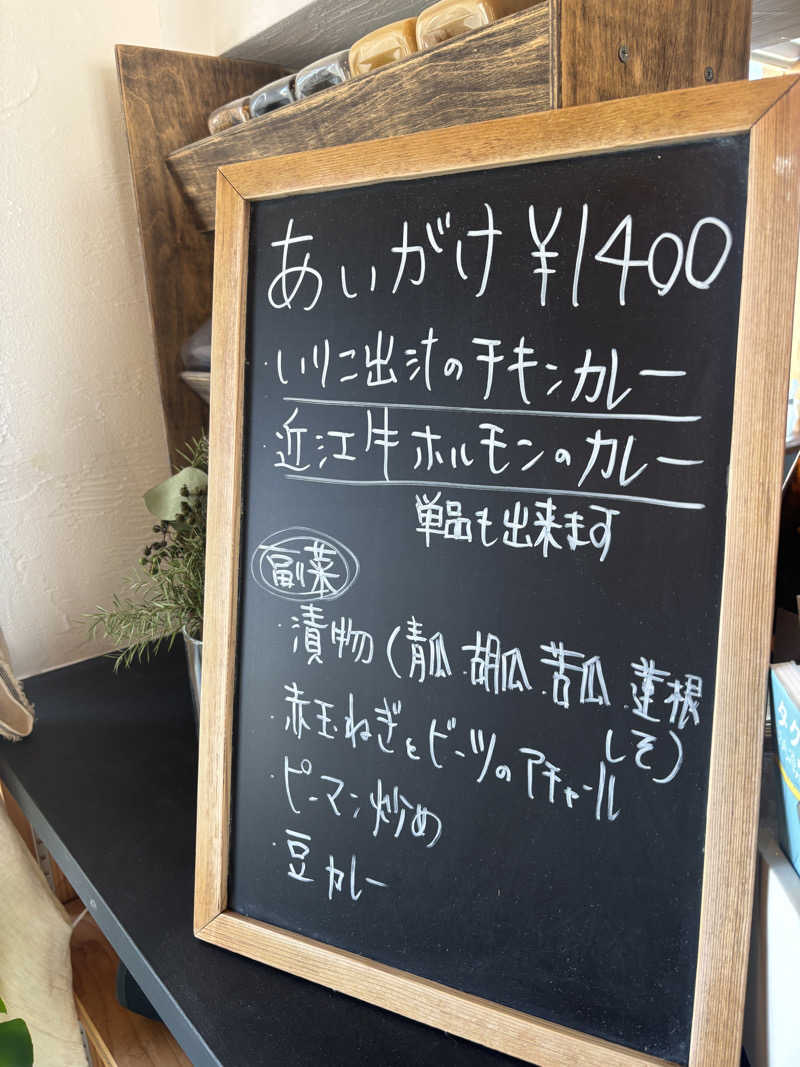 あいがけ ¥1400
・いりこ出汁のチキンカレー
・近江牛ホルモンのカレー
単品も出来ます
副菜
・漬物(青瓜.胡瓜.苦瓜.蓮根
しそ)
・赤玉ねぎとビーツのアチャール
・ピーマン炒め
・豆カレー